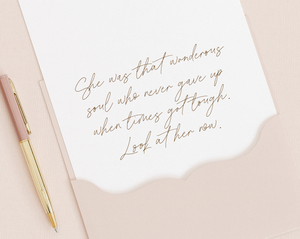 She was that wonderous
soul who never gave up
when times got tough.
Look at her now.